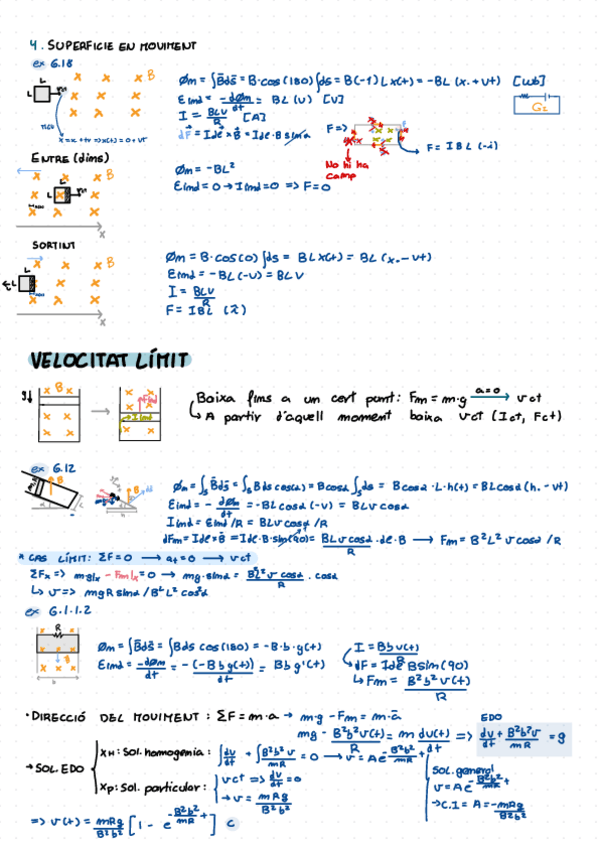 4. SUPERFICIE EN MOVIMENT
ex 6.18
B
L
L
Øm = ∫B̄ds̄ = B·cos(180)∫ds = B(-1)Lx(t) = -BL(x₀+vt) [Wb]
Eind = -dØm/dt = BL(v) [V]
I = BLv/R [A]
dF̄ = Idl×B̄ = Idl·B sinα
F=>
F = IBL(-i)
No hi ha
camp
ENTRE (dins)
B
L
L
Øm = -BL²
Eind = 0 → Iind = 0 => F = 0
x
SORTINT
B
L
L
Øm = B·cos(0)∫ds = BLx(t) = BL(x₀-vt)
Eind = -BL(-v) = BLv
I = BLv/R
F = IBL (i)
x
VELOCITAT LÍMIT
B
Find
Iind
Baixa fins a un cert punt: Fm = m·g a=0 → v ct
↳ A partir d'aquell moment baixa vct (Ict, Fct)
ex 6.12
B
Øm = ∫s B̄ds̄ = ∫s Bds cos(α) = Bcosα∫s ds = Bcosα·L·h(t) = BLcosα(h₀-vt)
Eind = -dØm/dt = -BLcosα(-v) = BLvcosα
Iind = Eind/R = BLvcosα/R
dFm = Idl×B̄ = Idl·B·sin(90) = BLvcosα/R ·dl·B → Fm = B²L²vcosα/R
* CAS LÍMIT: ΣF=0 → at=0 → vct
ΣFx => mg|x - Fm|x = 0 → mg·sinα = B²L²vcosα/R · cosα
↳ v => mgRsinα/B²L²cos²α
ex 6.1.1.2
R
B
b
Øm = ∫B̄ds̄ = ∫Bds cos(180) = -B·b·y(t)
Eind = -dØm/dt = -(-Bby(t))/dt = Bby'(t)
I = Bbv(t)/R
dF = IdlBsin(90)
↳ Fm = B²b²v(t)/R
· DIRECCIÓ DEL MOVIMENT: ΣF = m·a → m·g - Fm = m·ā
mg - B²b²v(t)/R = m dv(t)/dt =>
EDO
dv/dt + B²b²v/mR = g
→ SOL. EDO
XH: Sol. homogenia: ∫dv/dt + ∫B²b²v/mR = 0 → v = Ae^(-B²b²/mR t)
XP: Sol. particular: vct => dv/dt = 0
→ v = mRg/B²b²
Sol. general
v = Ae^(-B²b²/mR t)
→ C.I = A = -mRg/B²b²
=> v(t) = mRg/B²b² [1 - e^(-B²b²/mR t)]